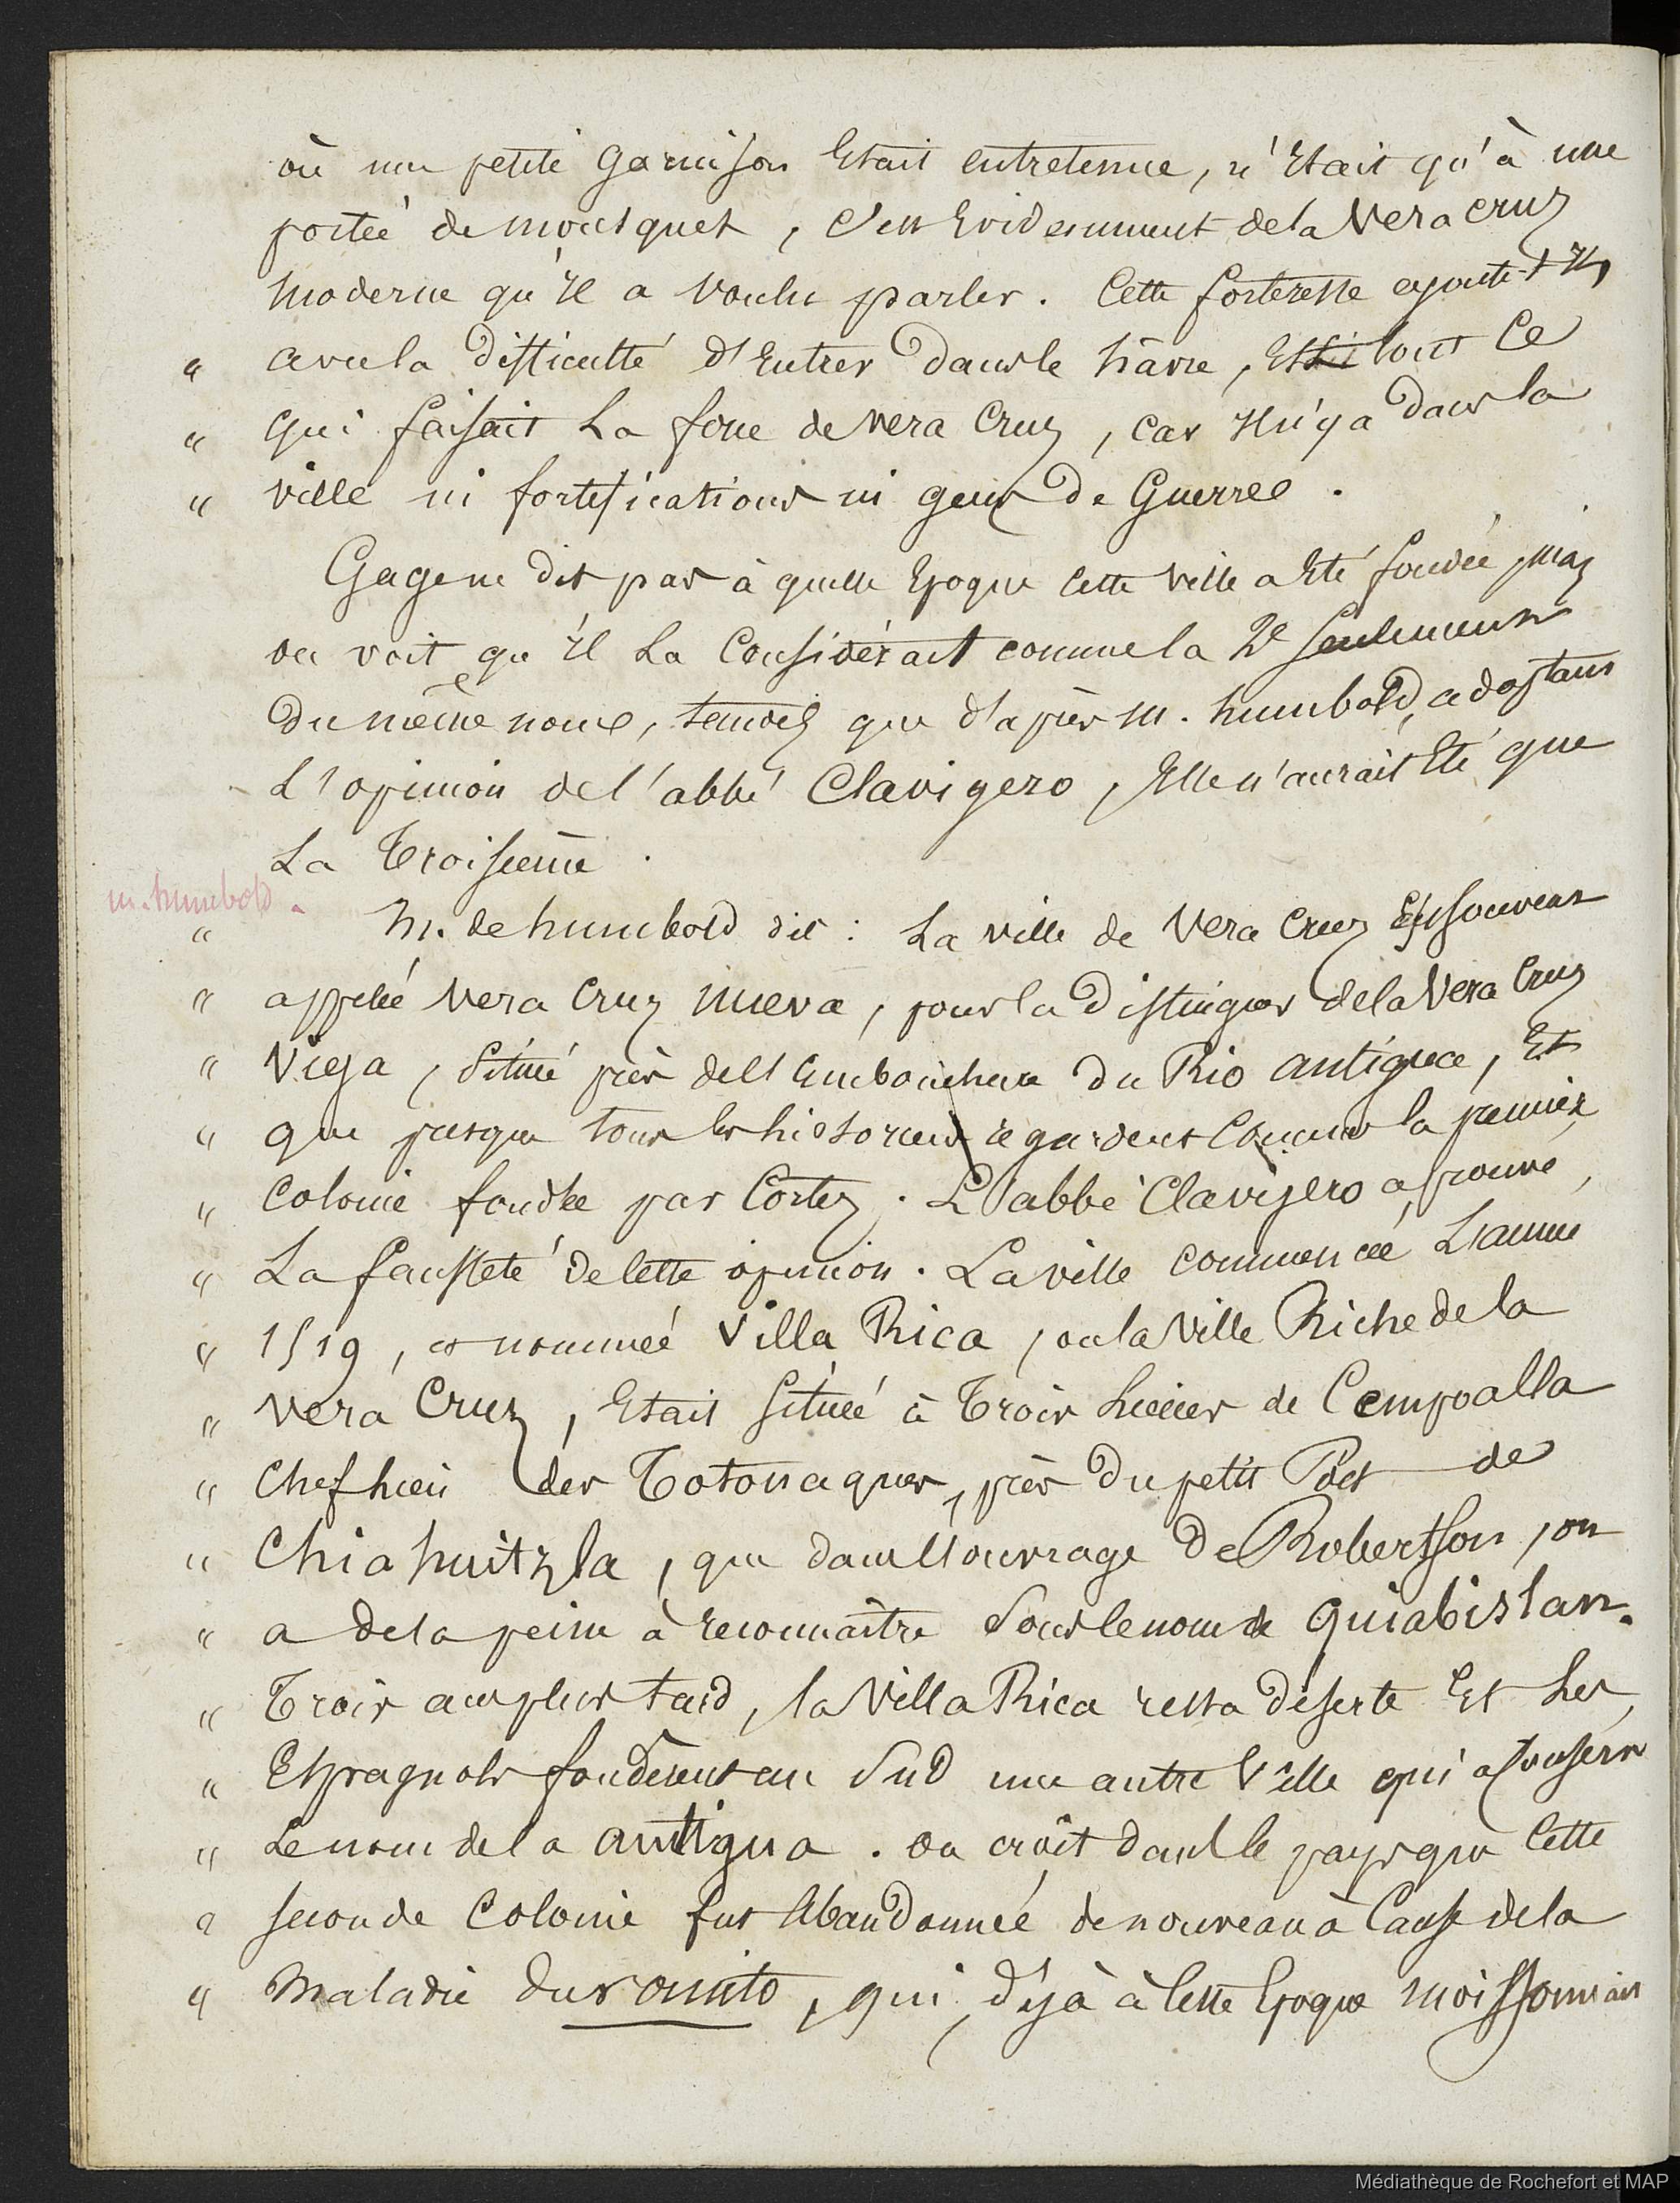 où une petite garnison Etait entretenue, n'Etait qu'à une
portée de mousquet, c'est Evidemment de la Vera cruz
moderne qu'il a voulu parler. Cette forteresse ajoute-t-il,
" avec la difficulté d'Entrer dans le hâvre, Est tout ce
" qui faisait La force de vera Cruz, car il n'y a dans la
" ville ni fortifications ni gens de Guerre.
Gage ne dit pas à quelle Epoque cette ville a Eté fondée, mais
on voit qu'il La Considérait comme la 2e Seulement
du même nom, tandis que d'après m. humbold, adoptant
L'opinion de l'abbé Clavigero, Elle n'aurait Eté que
La Troisième.
m. humbold.
" M. de humbold dit : La ville de Vera Cruz Est souvent
" appelée Vera Cruz nueva, pour la distinguer de la Vera Cruz
" Vieja, Située près de l'Embouchure du Rio antigua, Et
" que presque tous les historiens regardent Comme la première
" Colonie fondée par Cortez. L'abbé Clavigero a prouvé,
" La fausseté de cette opinion. La ville commencée L'année
" 1519, et nommée Villa Rica, ou la Ville Riche de la
" Vera Cruz, Etait Située à Trois Lieues de Cempoalla
" Chef lieu des Totonaques, près du petit Port de
" Chiahuitzla, que dans l'ouvrage de Robertson, on
" a de la peine à reconnaître Sous le nom de Quiabislan.
" Trois ans plus tard, la Villa Rica resta déserte Et Les
" Espagnols fondèrent au Sud une autre Ville qui a conservé
" Le nom de la antigua. on croit dans le pays que Cette
" seconde Colonie fut Abandonnée de nouveau à Cause de la
" Maladie du vomito, qui, déjà à cette Epoque moissonnait
Médiathèque de Rochefort et MAP